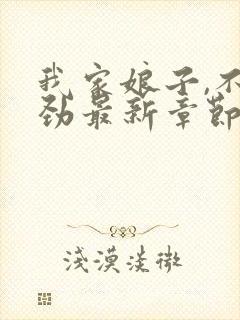 我家娘子,不
劲最新章節
浅漠淡微